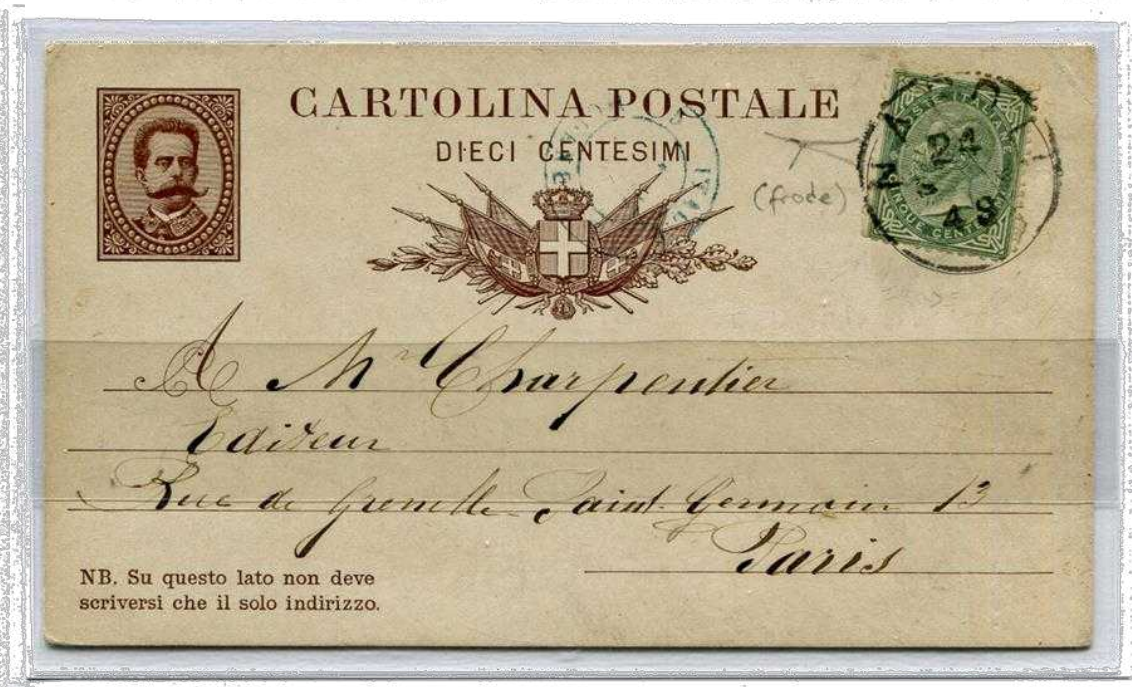 CARTOLINA POSTALE
DIECI CENTESIMI
(frode)
NAPOLI
24
48
POSTE ITALIANE
CINQUE CENTESIMI
A Mr Charpentier
Editeur
Rue de Grenelle Saint Germain 13
Paris
NB. Su questo lato non deve
scriversi che il solo indirizzo.